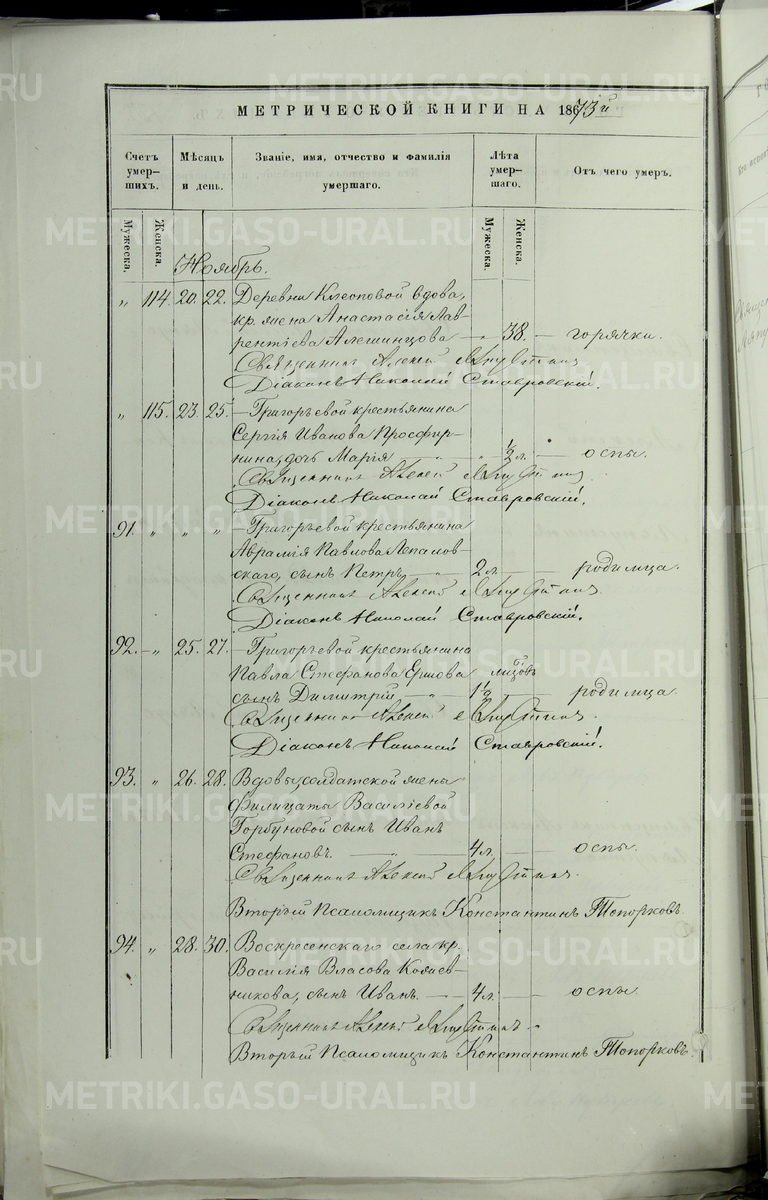 МЕТРИЧЕСКОЙ КНИГИ НА 1873й
Счетъ умер-шихъ.
Мѣсяцъ и день.
Званіе, имя, отчество и фамилія умершаго.
Лѣта умер-шаго.
Отъ чего умеръ.
Мужеска.
Женска.
Мужеска.
Женска.
Ноябрь.
„ 114. 20. 22. Деревни Клеоповой вдова,
кр. жена Анастасія Лав-
рентіева Алешинцова — „ 38. — горячки.
Священникъ Алексій
Діаконъ Николай Ставровскій.
„ 115. 23. 25. — Григорьевой крестьянина
Сергія Иванова Просфир-
нина, дочь Марія — „ ½ л. — оспы.
Священникъ Алексій
Діаконъ Николай Ставровскій.
91. „ „ „ — Григорьевой крестьянина
Аврамія Павлова Лепалов-
скаго, сынъ Петръ — 2 л. — родимца.
Священникъ Алексій
Діаконъ Николай Ставровскій.
92. — „ 25. 27. — Григорьевой крестьянина
Павла Стефанова Ершова
сынъ Димитрій — „ — 1½ — родимца.
Священникъ Алексій
Діаконъ Николай Ставровскій.
93. „ 26. 28. Вдовы, солдатской жены
Филицаты Василіевой
Горбуновой сынъ Иванъ
Стефановъ. — 4 л. — оспы.
Священникъ Алексій
Вторый Псаломщикъ Константинъ Топорковъ.
94. „ 28. 30. Воскресенскаго села кр.
Василія Власова Кожев-
никова, сынъ Иванъ. — 4 л. — оспы.
Священникъ Алексій
Вторый Псаломщикъ Константинъ Топорковъ.
METRIKI.GASO-URAL.RU